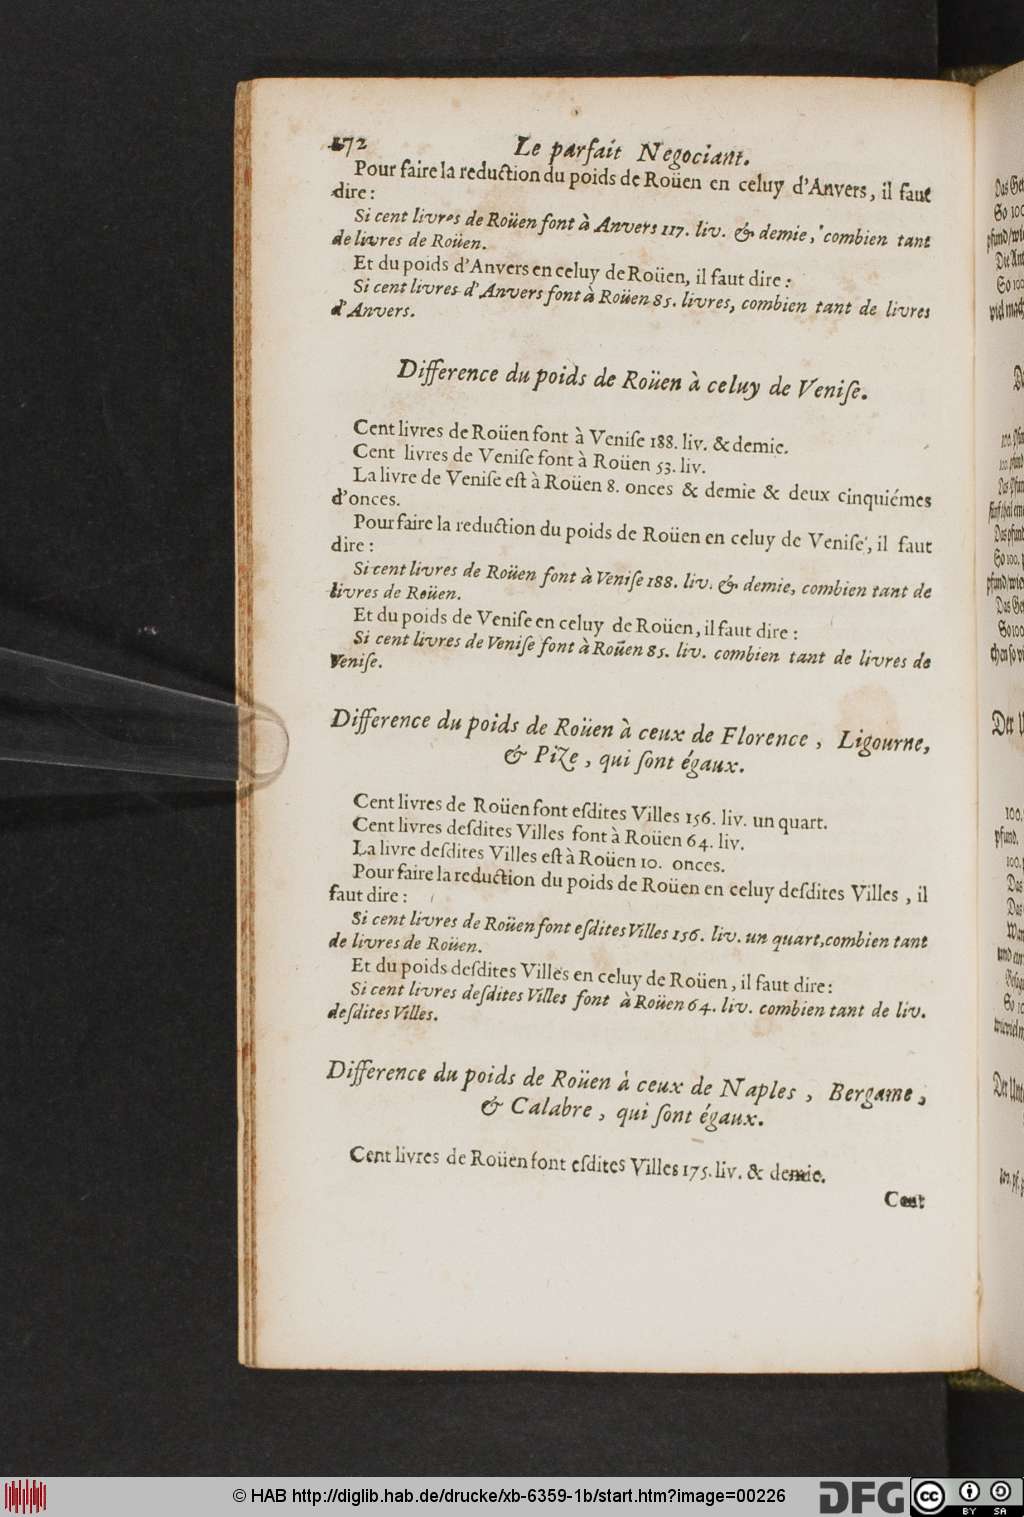 172 Le parfait Negociant.
Pour faire la reduction du poids de Roüen en celuy d'Anvers, il faut
dire:
Si cent livres de Roüen font à Anvers 117. liv. & demie, combien tant
de livres de Roüen.
Et du poids d'Anvers en celuy de Roüen, il faut dire:
Si cent livres d'Anvers font à Roüen 85. livres, combien tant de livres
d'Anvers.
Difference du poids de Roüen à celuy de Veniſe.
Cent livres de Roüen font à Veniſe 188. liv. & demie.
Cent livres de Veniſe font à Roüen 53. liv.
La livre de Veniſe eſt à Roüen 8. onces & demie & deux cinquiémes
d'onces.
Pour faire la reduction du poids de Roüen en celuy de Veniſe, il faut
dire:
Si cent livres de Roüen font à Veniſe 188. liv. & demie, combien tant de
livres de Roüen.
Et du poids de Veniſe en celuy de Roüen, il faut dire:
Si cent livres de Veniſe font à Roüen 85. liv. combien tant de livres de
Veniſe.
Difference du poids de Roüen à ceux de Florence, Ligourne,
& Pize, qui ſont égaux.
Cent livres de Roüen font eſdites Villes 156. liv. un quart.
Cent livres deſdites Villes font à Roüen 64. liv.
La livre deſdites Villes eſt à Roüen 10. onces.
Pour faire la reduction du poids de Roüen en celuy deſdites Villes, il
faut dire:
Si cent livres de Roüen font eſdites Villes 156. liv. un quart, combien tant
de livres de Roüen.
Et du poids deſdites Villes en celuy de Roüen, il faut dire:
Si cent livres deſdites Villes font à Roüen 64. liv. combien tant de liv.
deſdites Villes.
Difference du poids de Roüen à ceux de Naples, Bergame,
& Calabre, qui ſont égaux.
Cent livres de Roüen font eſdites Villes 175. liv. & demie.
Cent
© HAB http://diglib.hab.de/drucke/xb-6359-1b/start.htm?image=00226
DFG
cc BY SA